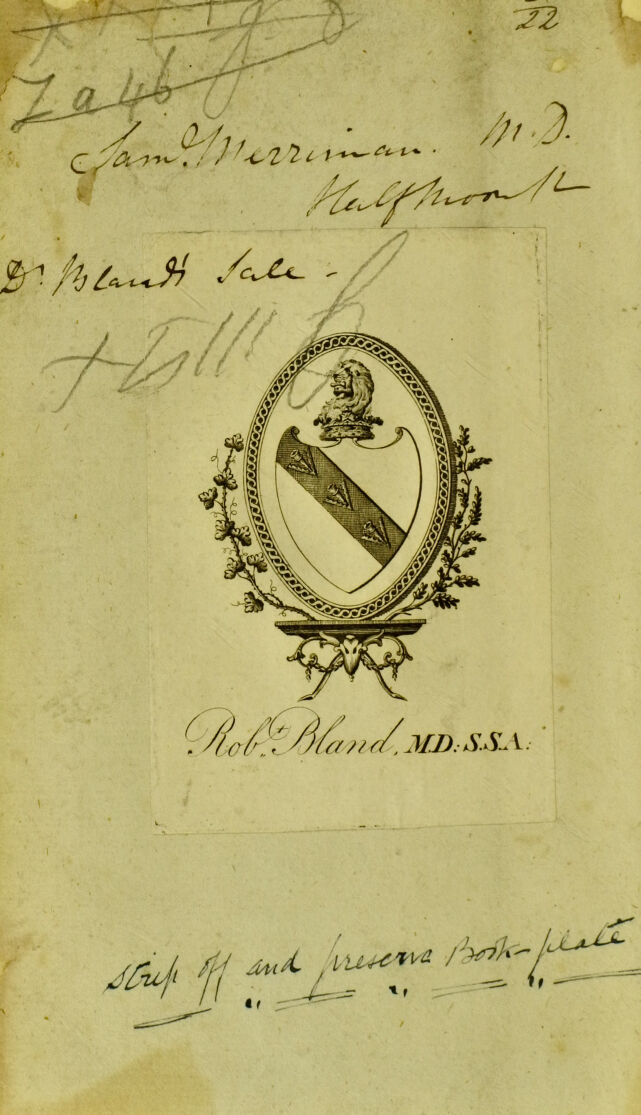 22
Z a 46
Saml. Merriman. M.D.
Half moon St
Dr. Bland's Sale -
Robt. Bland, M.D: S.S.A:
Strip off and preserve Book-plate